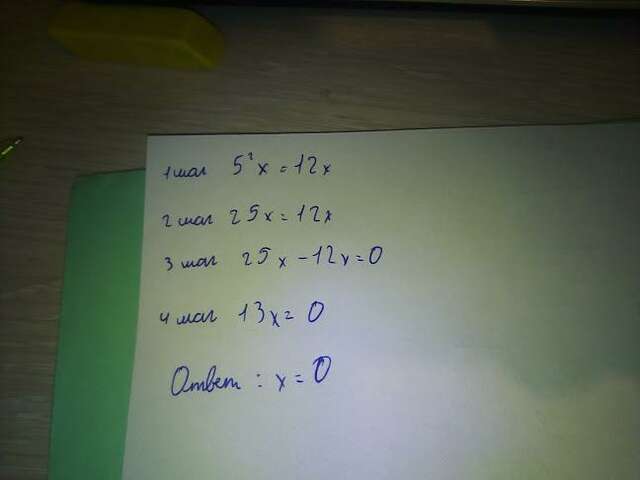 1 шаг 5²x = 12x
2 шаг 25x = 12x
3 шаг 25x - 12x = 0
4 шаг 13x = 0
Ответ : x = 0